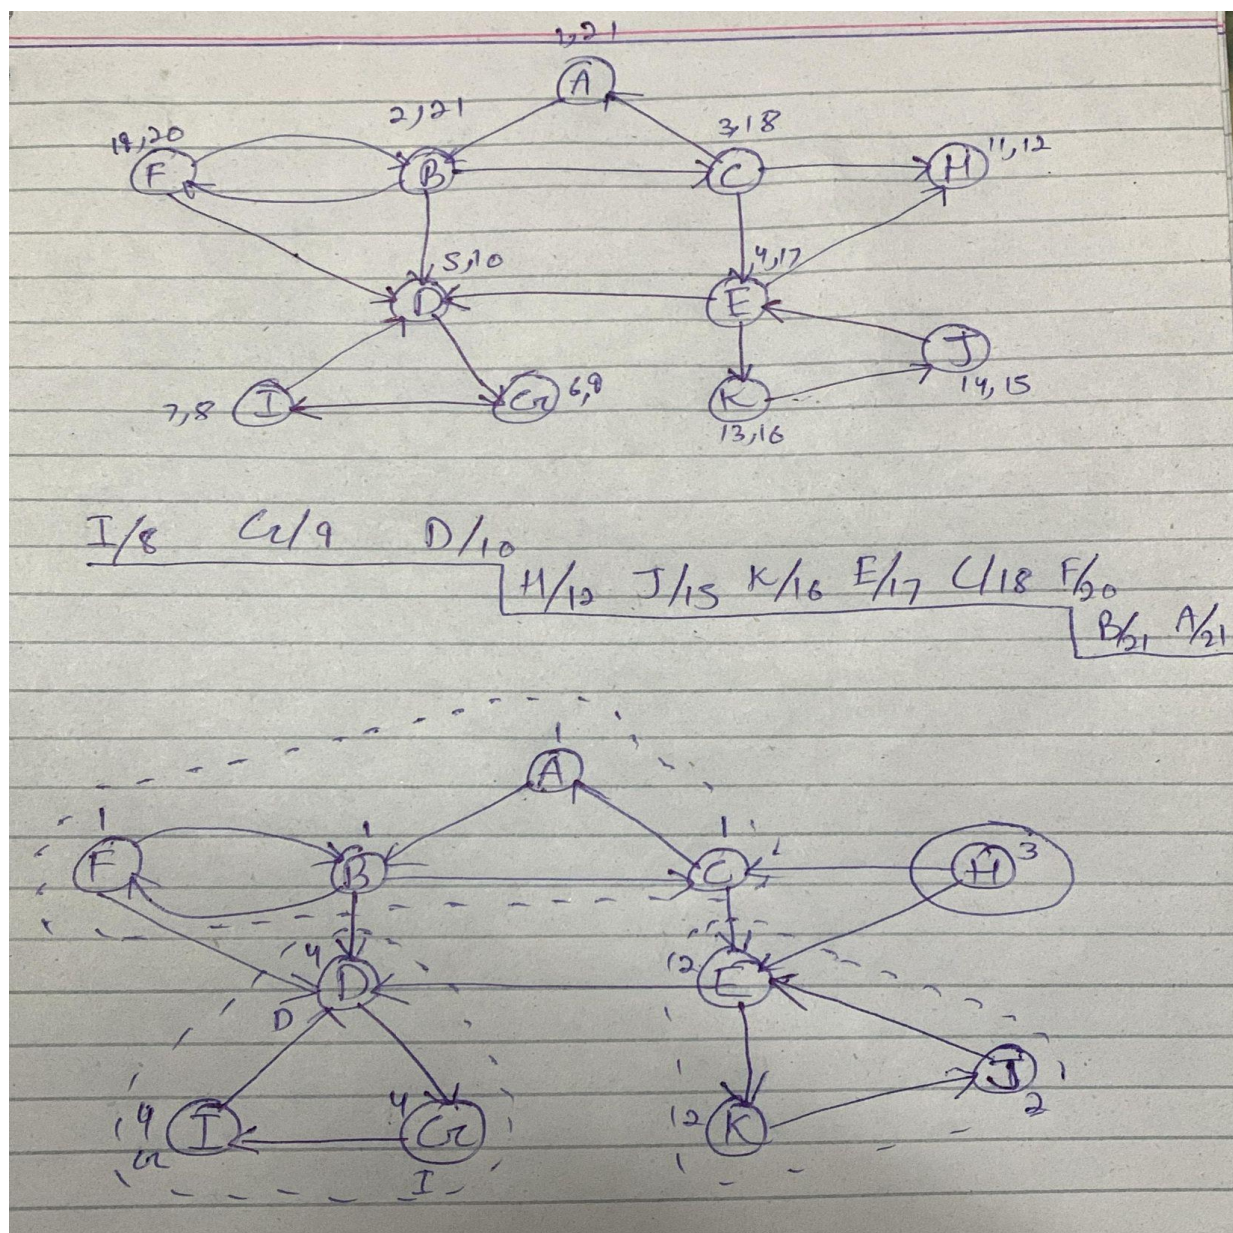 1,21
A
2,21
3,18
19,20
11,12
F
B
C
H
5,10
4,17
D
E
J
14,15
7,8
I
G
6,9
K
13,16
I/8 G/9 D/10
H/12 J/15 K/16 E/17 C/18 F/20
B/21 A/21
1
A
1
1
1
F
B
C
H
3
4
D
D
2
E
J
2
4
I
G
4
G
I
2
K